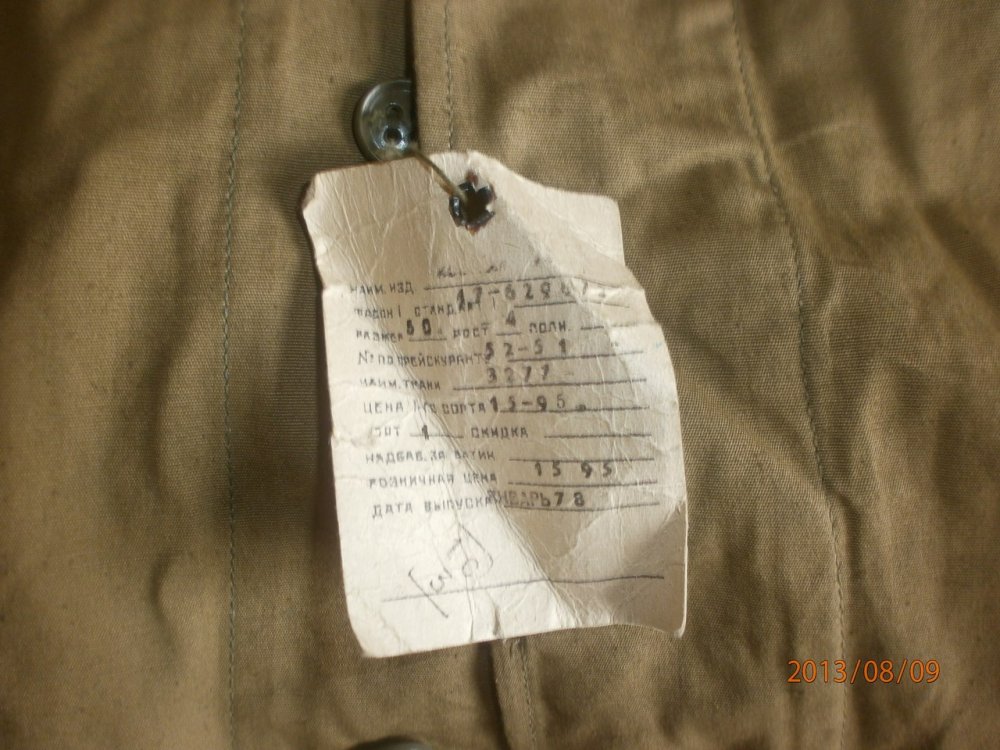 НАИМ. ИЗД.
ФАСОН СТАНДАРТ 17-6296
РАЗМЕР 50 РОСТ 4 ПОЛН.
№ ПО ПРЕЙСКУРАНТУ 52-51
НАИМ. ТКАНИ 3277
ЦЕНА 1-ГО СОРТА 15-95
СОРТ 1 СКИДКА
НАДБАВ. ЗА ВАТИН
РОЗНИЧНАЯ ЦЕНА 15 95
ДАТА ВЫПУСКА ЯНВАРЬ 78
2013/08/09